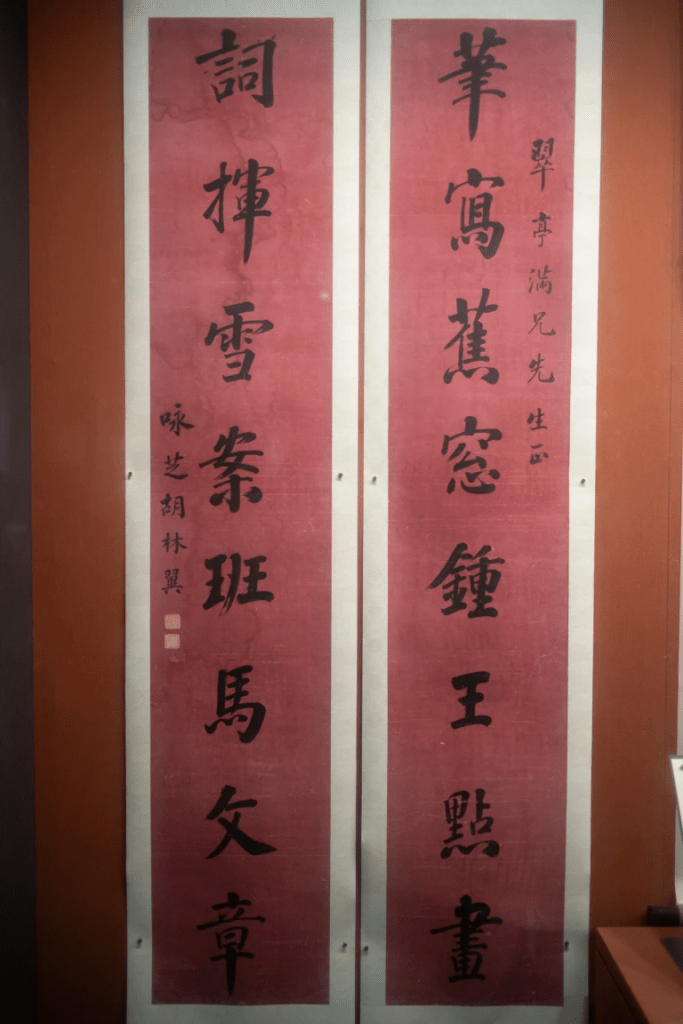 翠亭滿兄先生正
筆寫蕉窓鍾王點畫
詞揮雪案班馬文章
咏芝胡林翼